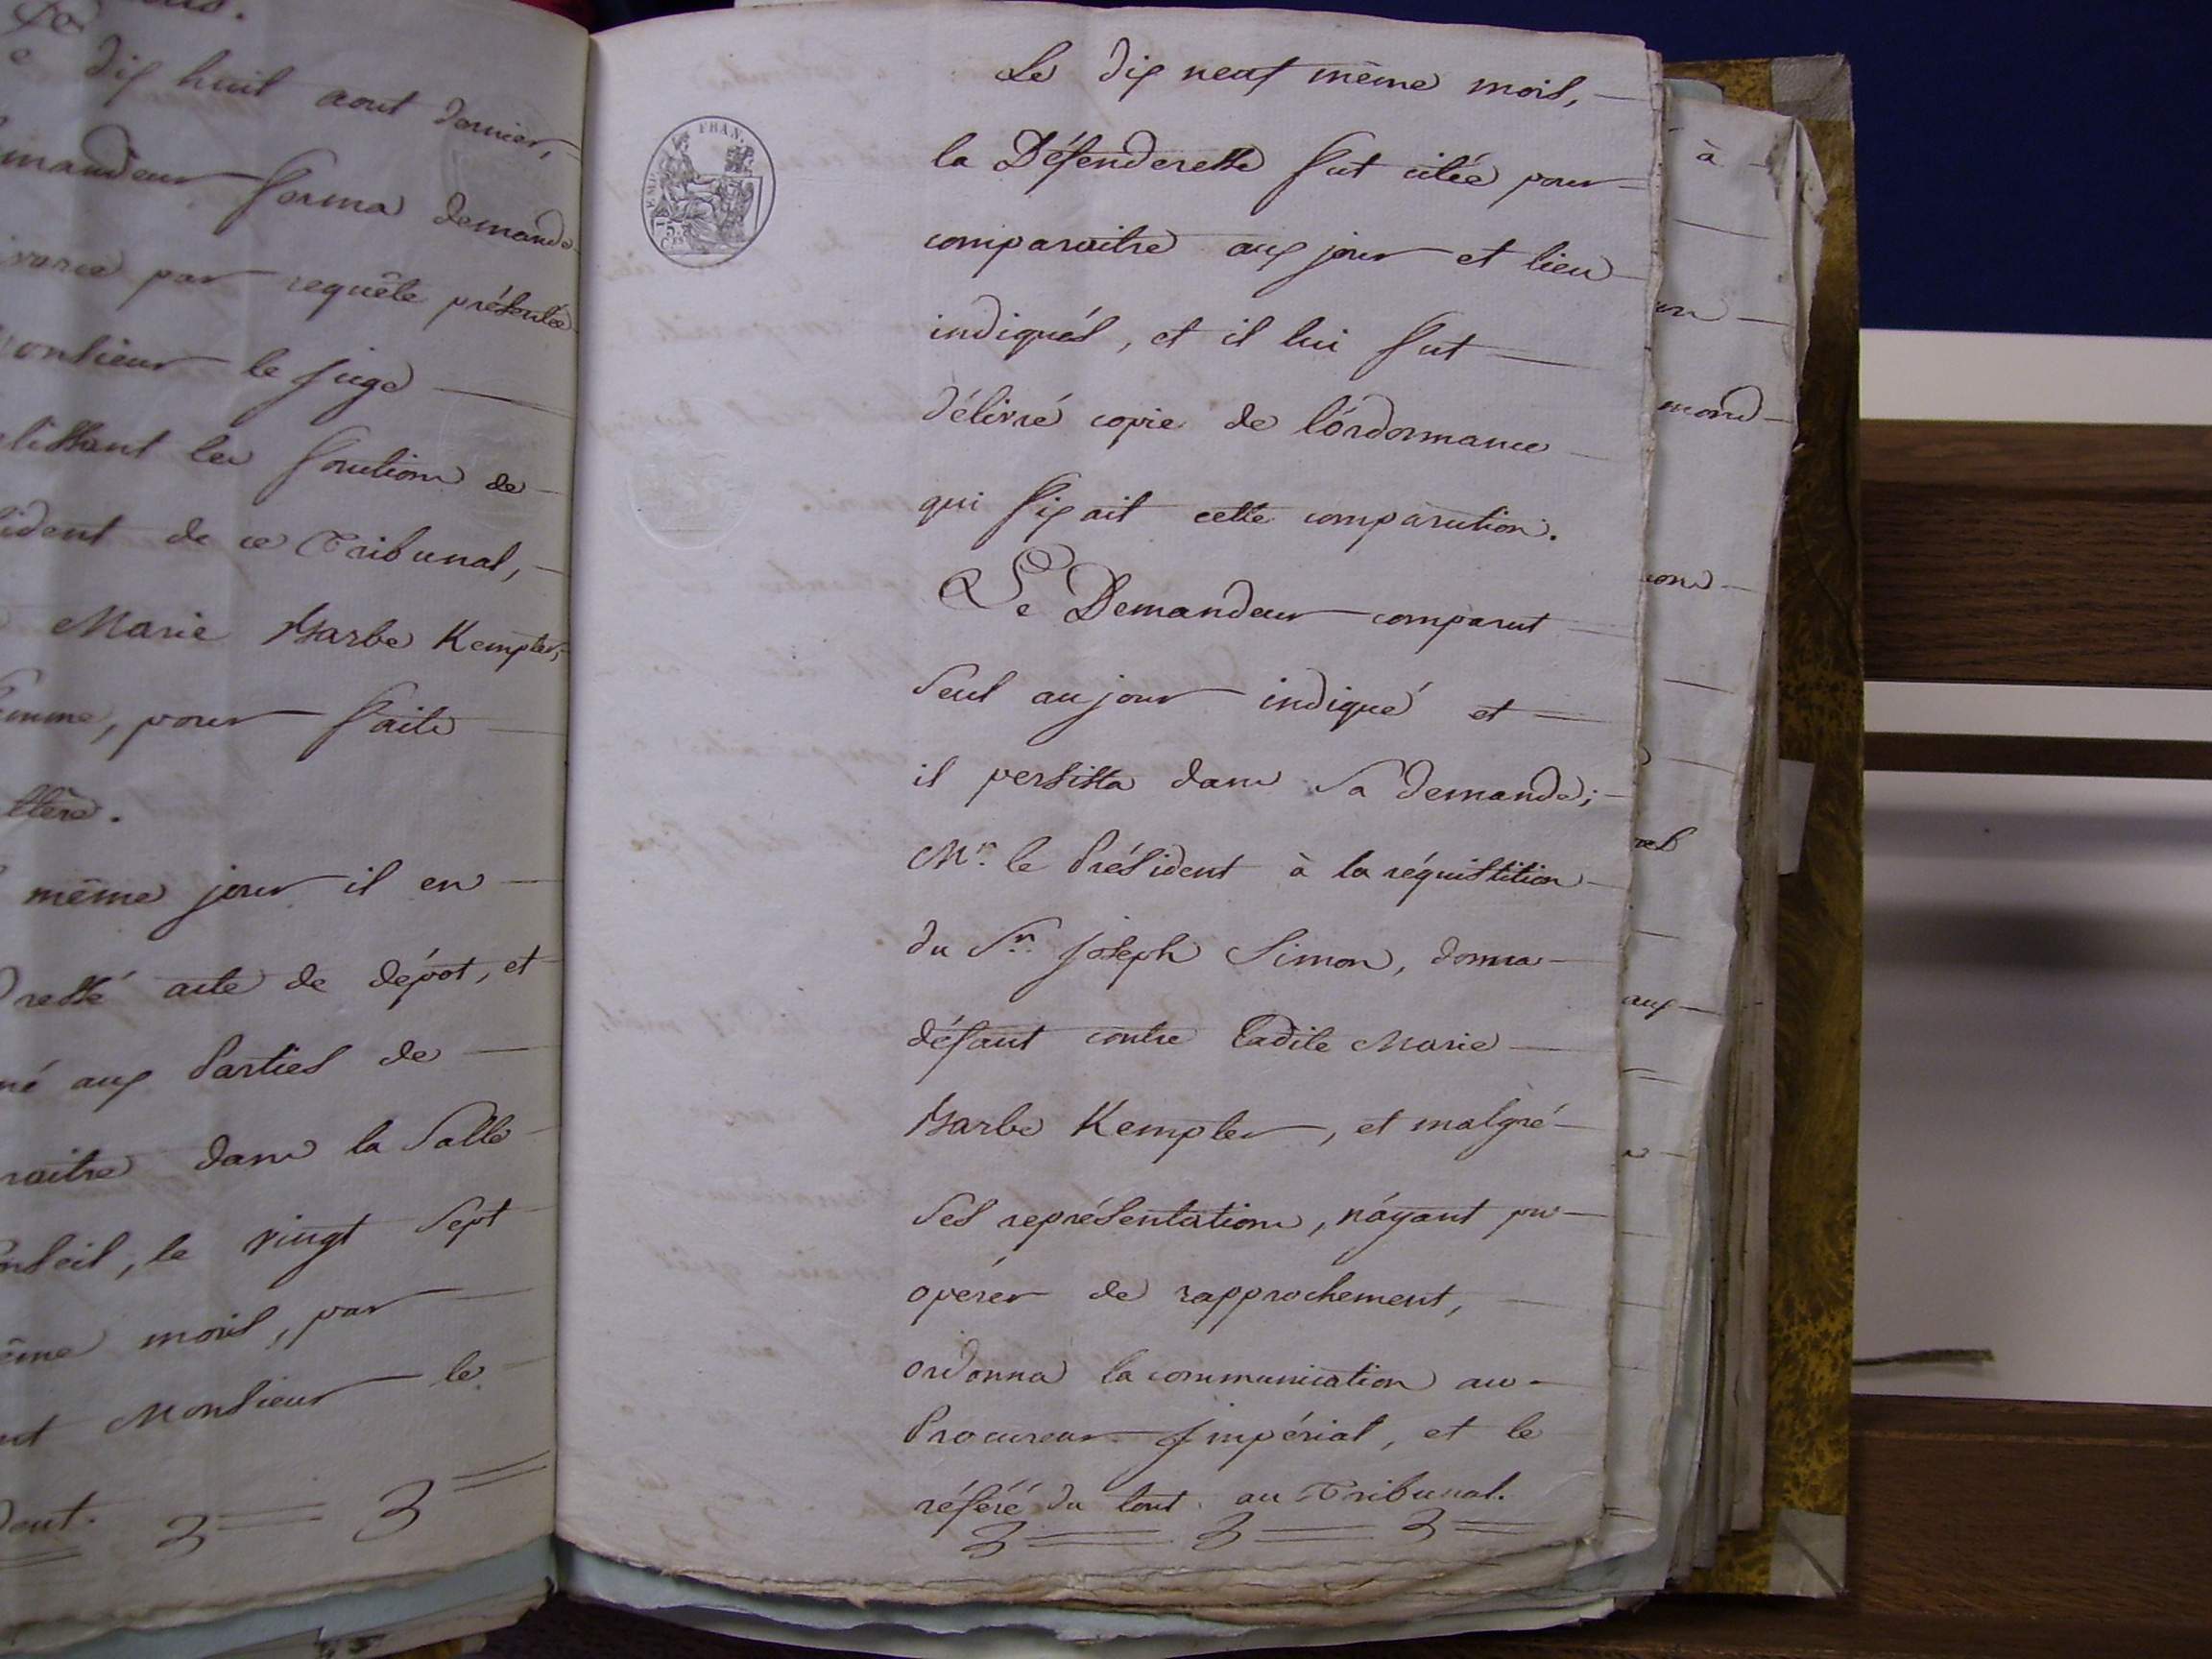 dix huit aout dernier,
forma demande
par requête présentée
le Juge
les fonctions de
de ce Tribunal,
Marie Barbe Kempler,
pour faits
même jour il en
acte de dépot, et
aux Parties de
dans la Salle
le vingt Sept
mois, par
Monsieur le
Le dix neuf même mois,
la Défenderesse fut citée pour
comparaitre aux jour et lieu
indiqués, et il lui fut
délivré copie de l'ordonnance
qui fixait cette comparution.
Le Demandeur comparut
Seul au jour indiqué et
il persista dans Sa demande;
Mr. le Président à la réquisition
du Sr. Joseph Simon, donna
défaut contre Ladite Marie
Barbe Kempler, et malgré
Ses représentations, n'ayant pu
opérer de rapprochement,
ordonna la communication au
Procureur Impérial, et le
référé du tout au Tribunal.
EMP. FRAN.
75.
à
aux